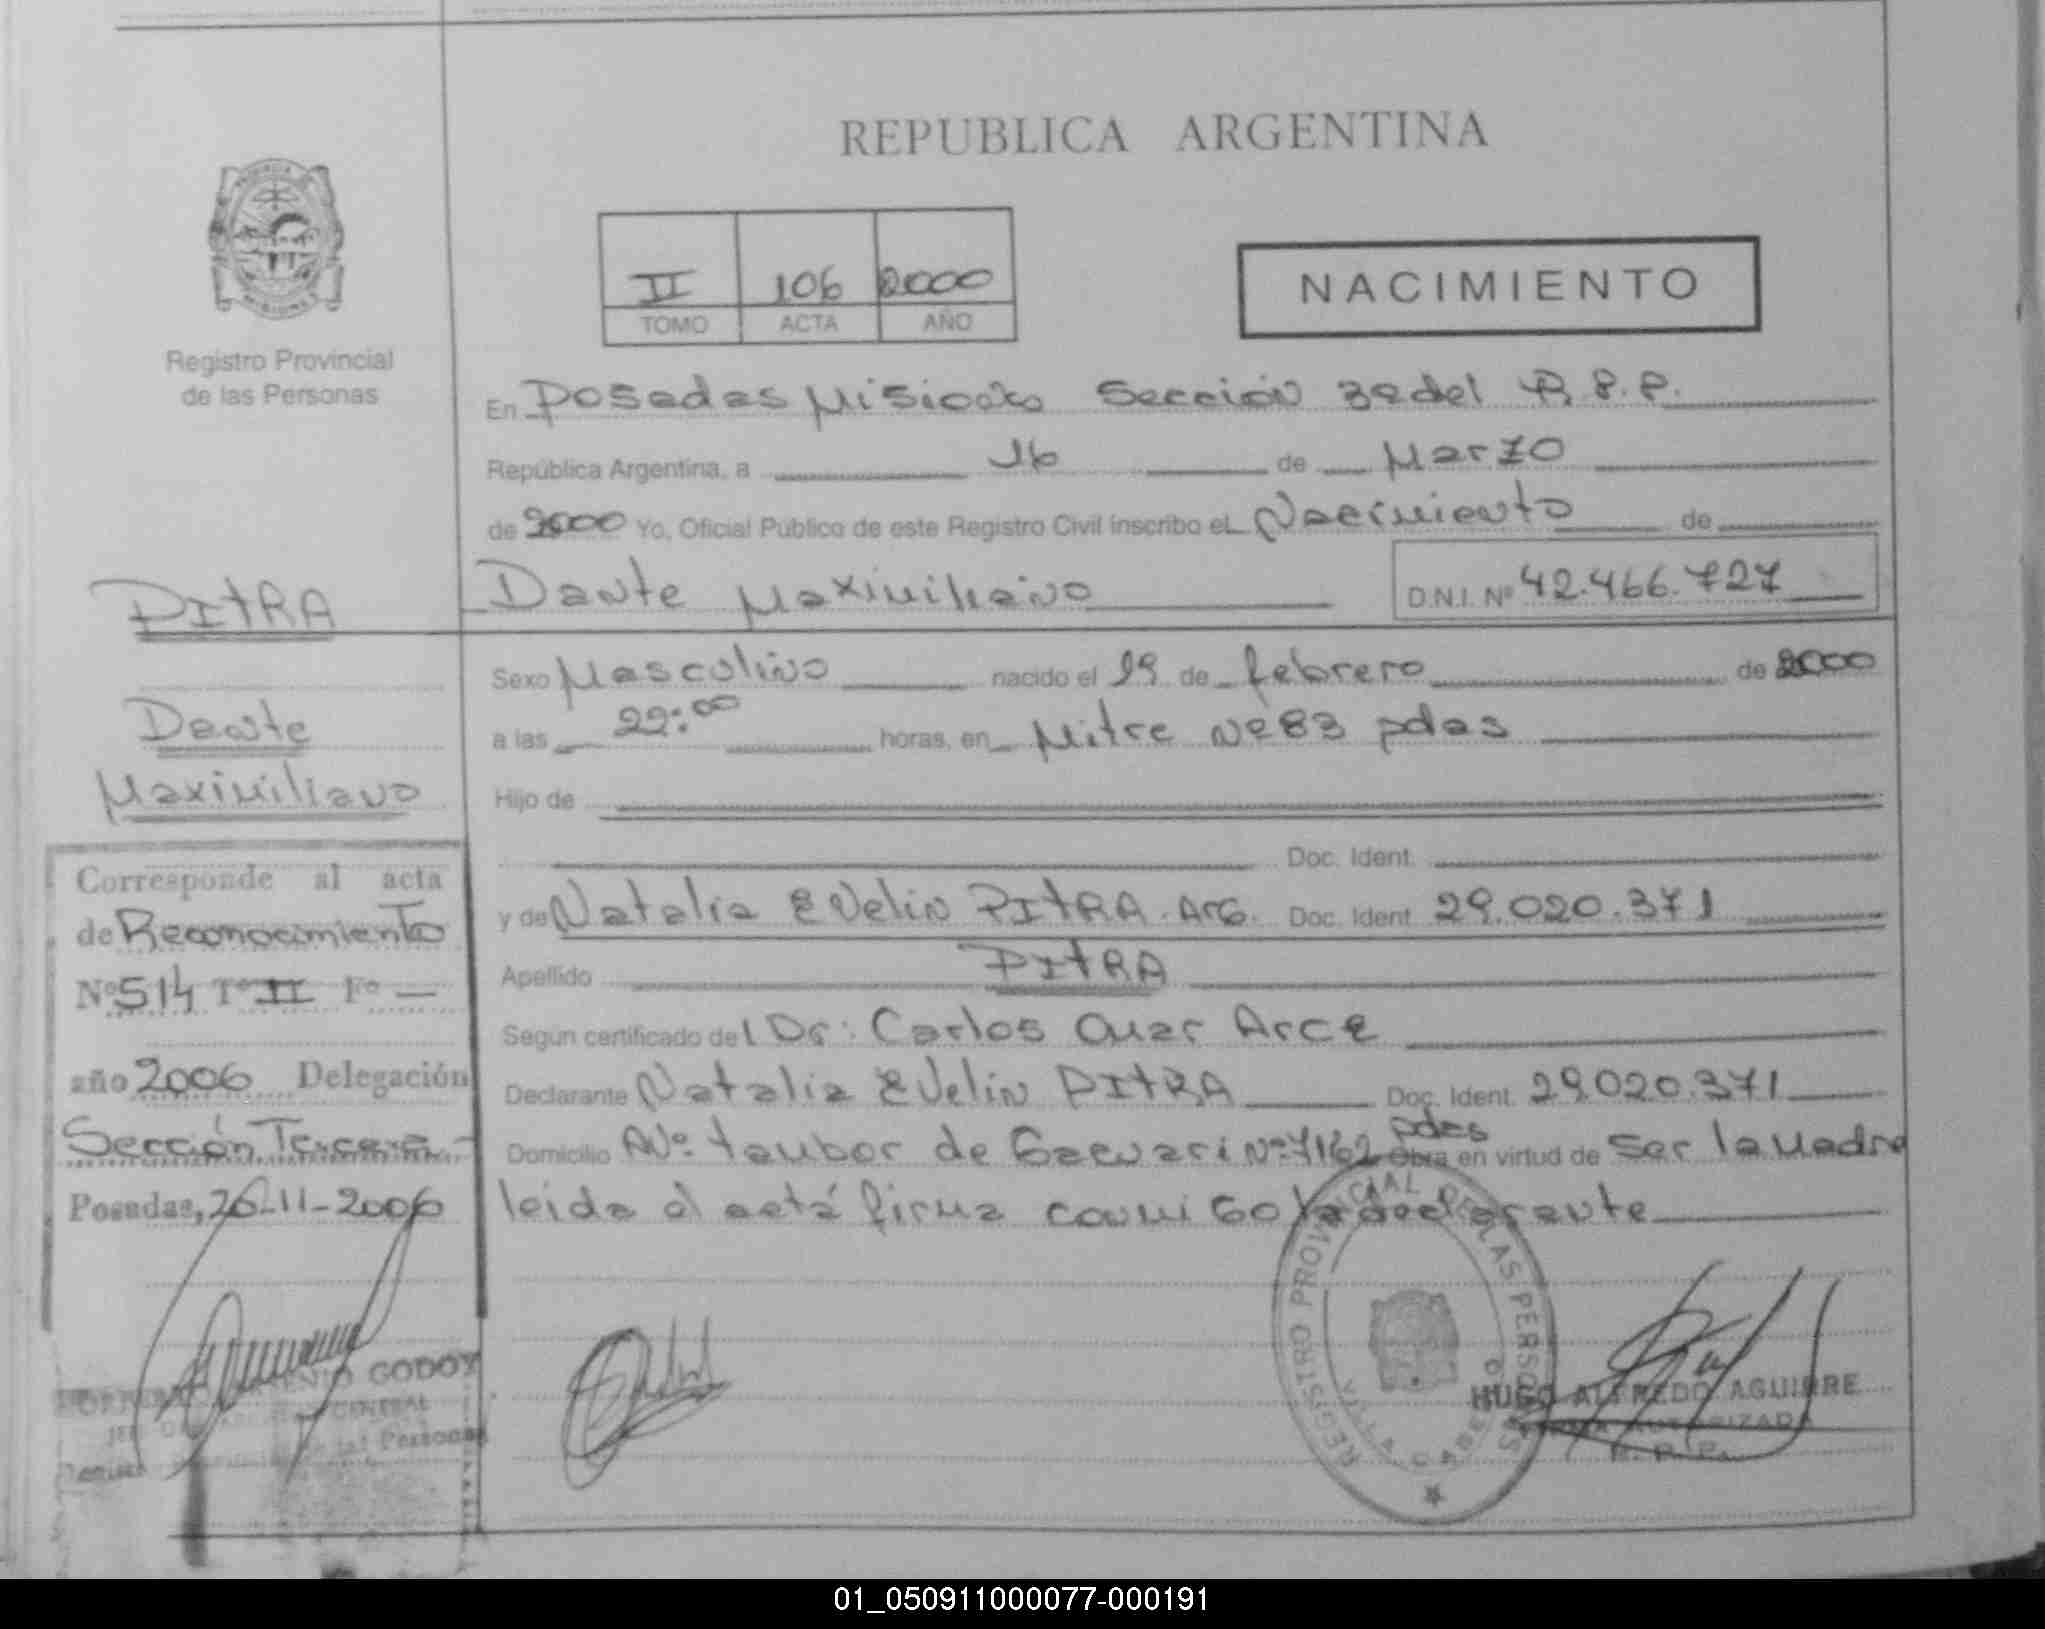 REPUBLICA ARGENTINA
II 106 2000
TOMO ACTA AÑO
NACIMIENTO
Registro Provincial
de las Personas
En Posadas Misiones Sección 3ª del R.P.P.
República Argentina, a 16 de Marzo
de 2000 Yo, Oficial Público de este Registro Civil inscribo el Nacimiento de
Dante Maximiliano D.N.I. Nº 42.466.727
PITRA
Dante
Maximiliano
Sexo Masculino nacido el 19 de febrero de 2000
a las 22:00 horas, en Mitre Nº 83 pdas
Hijo de
Doc. Ident.
y de Natalia Evelin PITRA. Arg. Doc. Ident 29.020.371
Apellido PITRA
Según certificado del Dr: Carlos Omar Arce
Declarante Natalia Evelin PITRA Doc. Ident. 29.020.371
Domicilio Av: taubor de Gaewari Nº 7162 pdas Obra en virtud de ser la Madre
leida el actá firma conmigo la declarante
Corresponde al acta
de Reconocimiento
Nº 514 Tº II Fº —
año 2006 Delegación
Sección Tercera
Posadas, 26-11-2006
GODOY
CENTRAL
Personas
REGISTRO PROVINCIAL DE LAS PERSONAS
VILLA CABELLO
HUGO ALFREDO AGUIRRE
FIRMA AUTORIZADA
R. P. P.
01_050911000077-000191